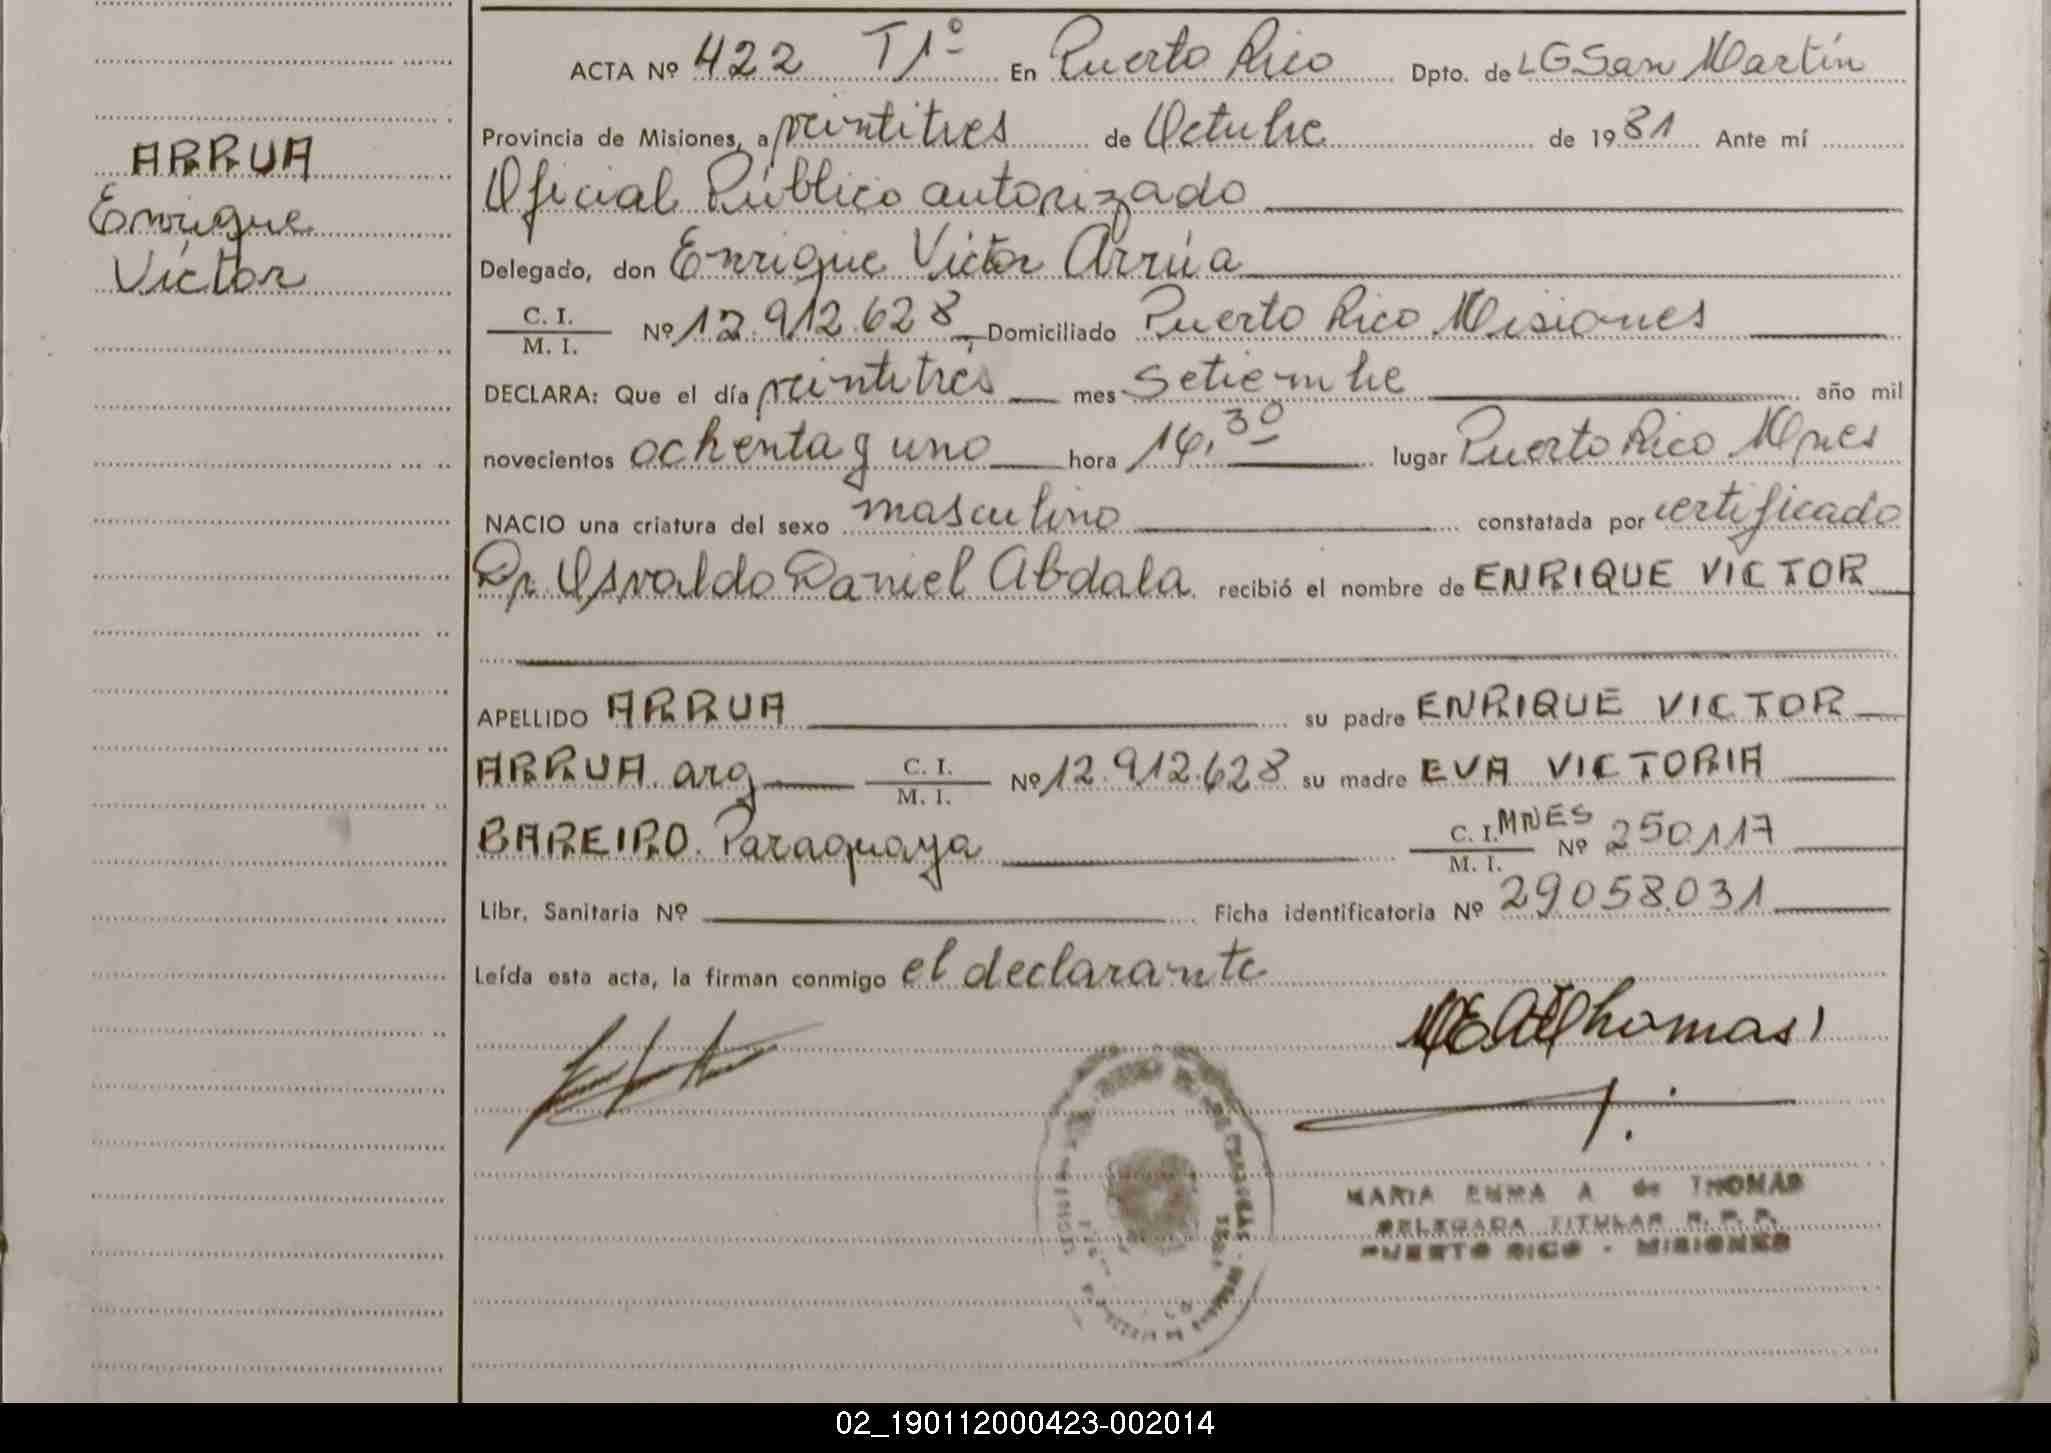 ARRUA
Enrique
Víctor
ACTA Nº 422 T1º En Puerto Rico Dpto. de LG San Martín
Provincia de Misiones, a veintitres de Octubre de 1981 Ante mí
Oficial Público autorizado
Delegado, don Enrique Victor Arrúa
C. I. / M. I. Nº 12.912.628, Domiciliado Puerto Rico Misiones
DECLARA: Que el día veintitres mes Setiembre año mil
novecientos ochenta y uno hora 14.30 lugar Puerto Rico Mnes
NACIO una criatura del sexo masculino constatada por certificado
Dr. Osvaldo Daniel Abdala recibió el nombre de ENRIQUE VICTOR
APELLIDO ARRUA su padre ENRIQUE VICTOR
ARRUA. arg C. I. / M. I. Nº 12.912.628 su madre EVA VICTORIA
BAREIRO. Paraguaya C. I. / M. I. MNES Nº 250117
Libr. Sanitaria Nº Ficha identificatoria Nº 29058031
Leída esta acta, la firman conmigo el declarante
MEAdThomas
MARIA EMMA A de THOMAS
DELEGADA TITULAR R. P. P.
PUERTO RICO - MISIONES
02_190112000423-002014